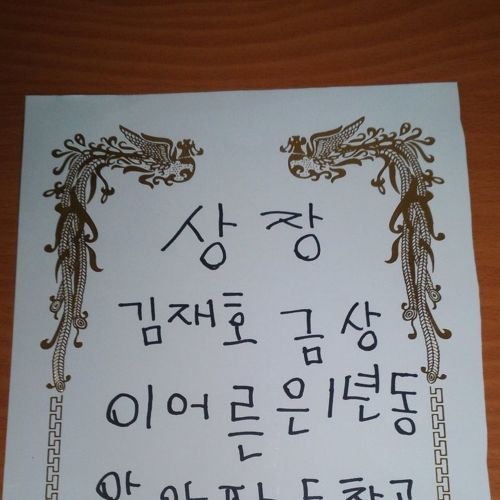 상장
김재호 금상
이어른은 1년동